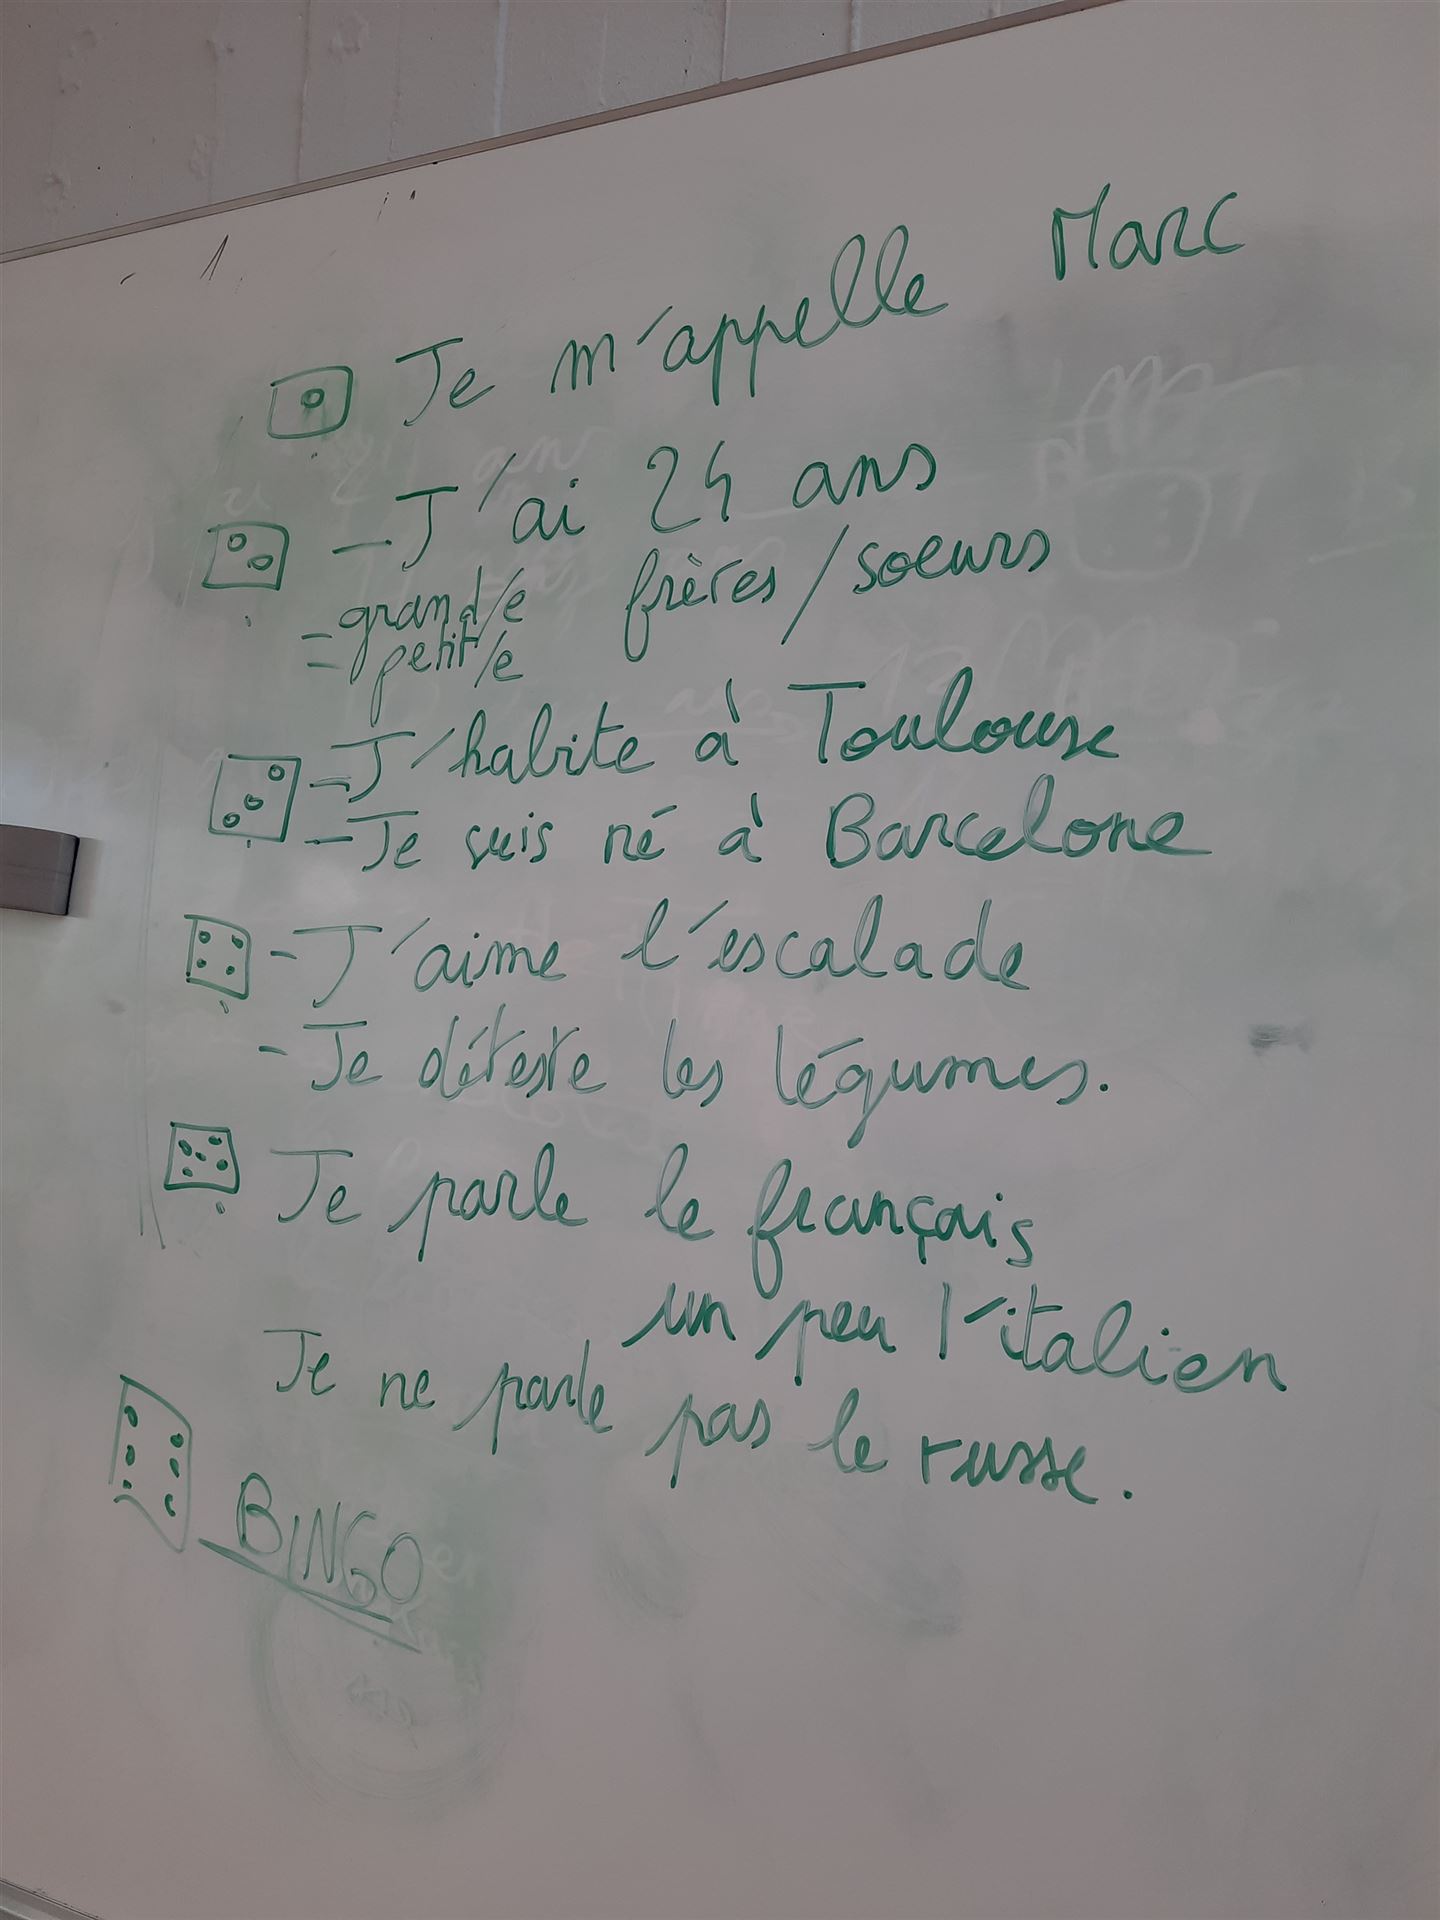 Je m'appelle Marc
- J'ai 24 ans
= grand/e frères / soeurs
= petit/e
- J'habite à Toulouse
- Je suis né à Barcelone
- J'aime l'escalade
- Je déteste les légumes.
Je parle le français
un peu l'italien
Je ne parle pas le russe.
BINGO